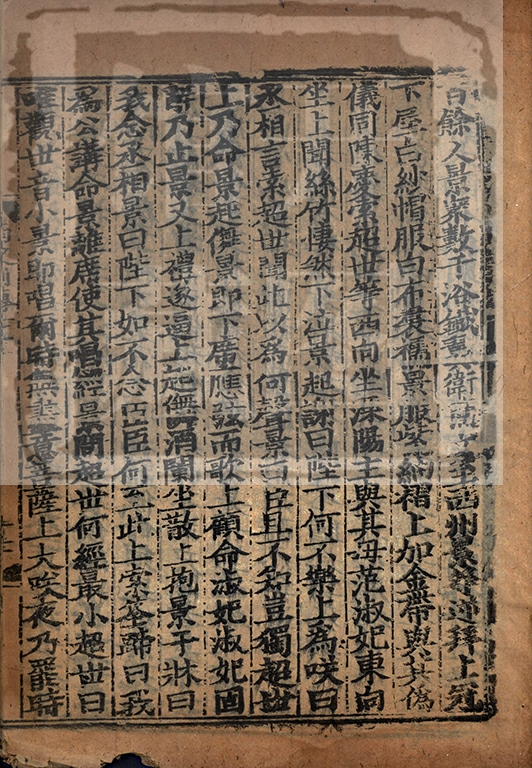 百餘人景衆數千浴鐵翼衛簡文至西州景等迎拜上冠
下屋白紗帽服白布裙襦景服紫紬褶上加金帶與其偽
儀同陳慶索超世等西向坐溧陽主與其母范淑妃東向
坐上聞絲竹悽然下泣景起謝曰陛下何不樂上為咲曰
丞相言索超世聞此以為何聲景曰臣且不知豈獨超世
上乃命景起儛景即下席應弦而歌上顧命淑妃淑妃固
辭乃止景又上禮遂逼上起儛酒闌坐散上抱景于牀曰
我念丞相景曰陛下如不念臣臣何至此上索筌蹄曰我
為公講命景離席使其唱經景問超世何經最小超世曰
唯觀世音小景即唱爾時無盡意菩薩上大咲夜乃罷時